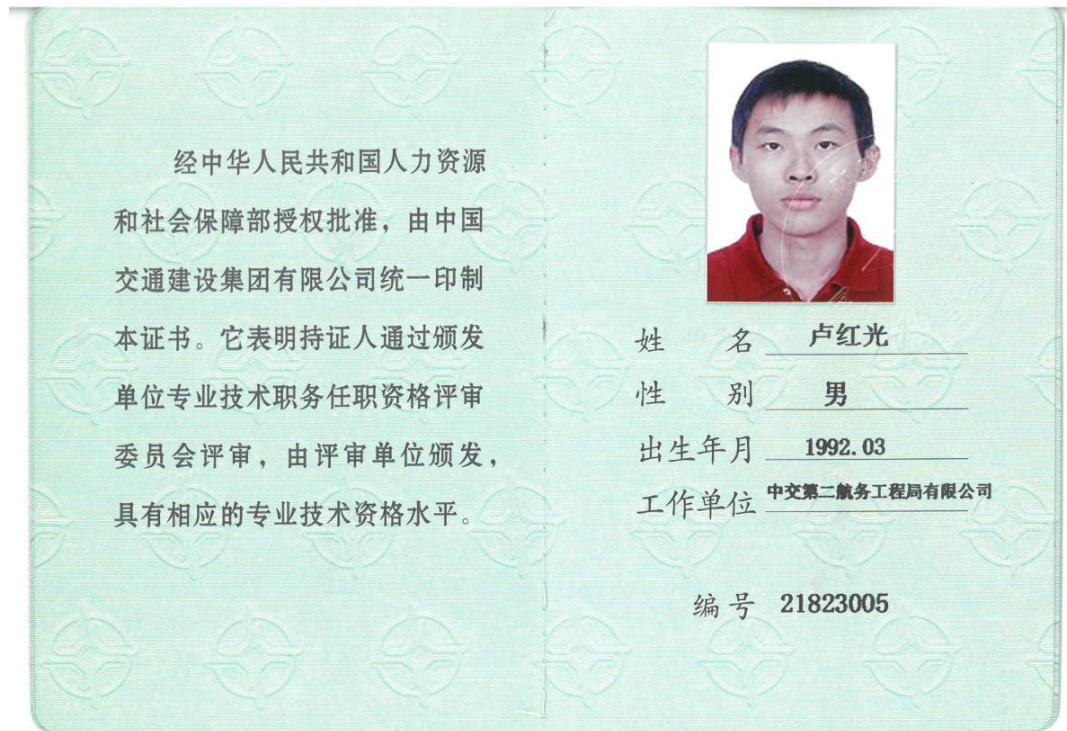 经中华人民共和国人力资源
和社会保障部授权批准，由中国
交通建设集团有限公司统一印制
本证书。它表明持证人通过颁发
单位专业技术职务任职资格评审
委员会评审，由评审单位颁发，
具有相应的专业技术资格水平。
姓 名 卢红光
性 别 男
出生年月 1992.03
工作单位 中交第二航务工程局有限公司
编号 21823005